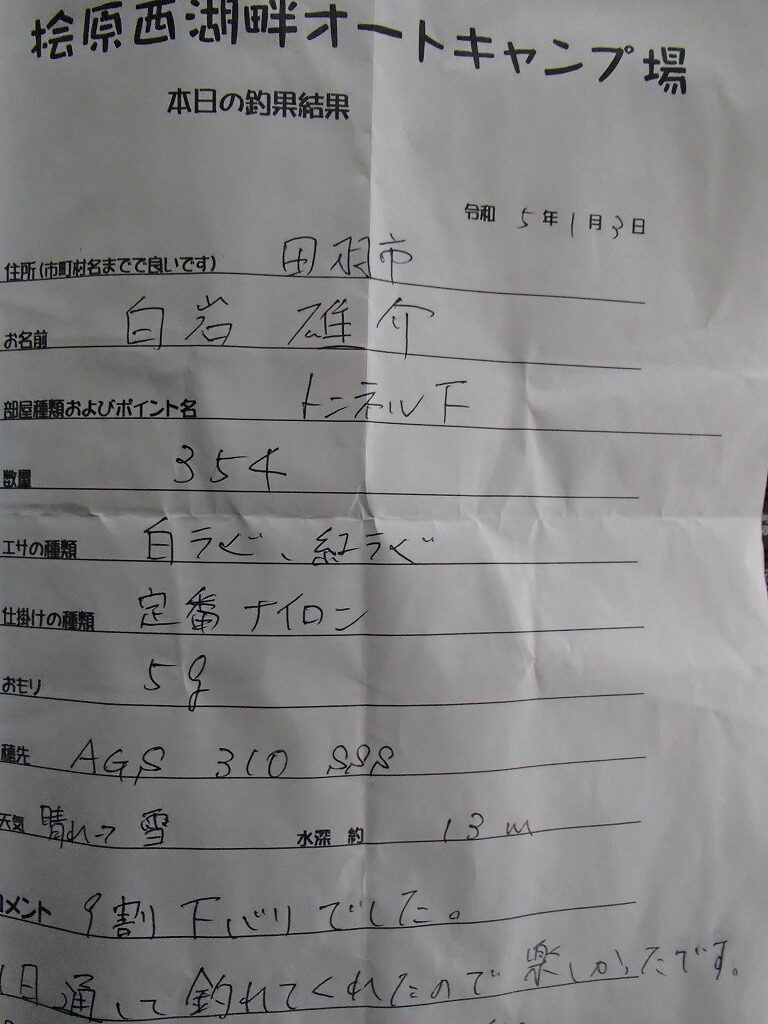 桧原西湖畔オートキャンプ場
本日の釣果結果
令和 5年1月3日
住所(市町村名までで良いです) 田羽市
お名前 白岩 雄介
部屋種類およびポイント名 トンネル下
数量 354
エサの種類 白ラビ、紅ラビ
仕掛けの種類 定番ナイロン
おもり 5g
穂先 AGS 310 SSS
天気 晴れ→雪 水深 約 13m
コメント 9割下バリでした。
1日通して釣れてくれたので楽しかったです。